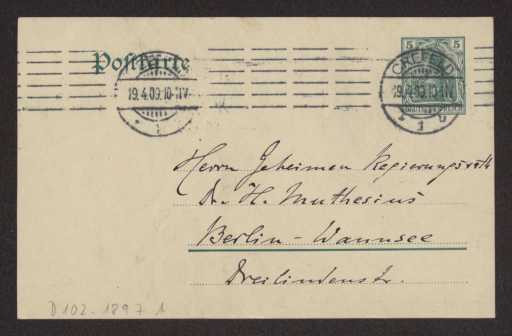 Postkarte
5 5
CREFELD
19.4.09.10-11V.
* 1
CREFELD
19.4.09.10-11V.
* 1 b
Herrn Geheimen Regierungsrath
Dr. H. Muthesius
Berlin-Wannsee
Dreilindenstr.
D 102-1897 1